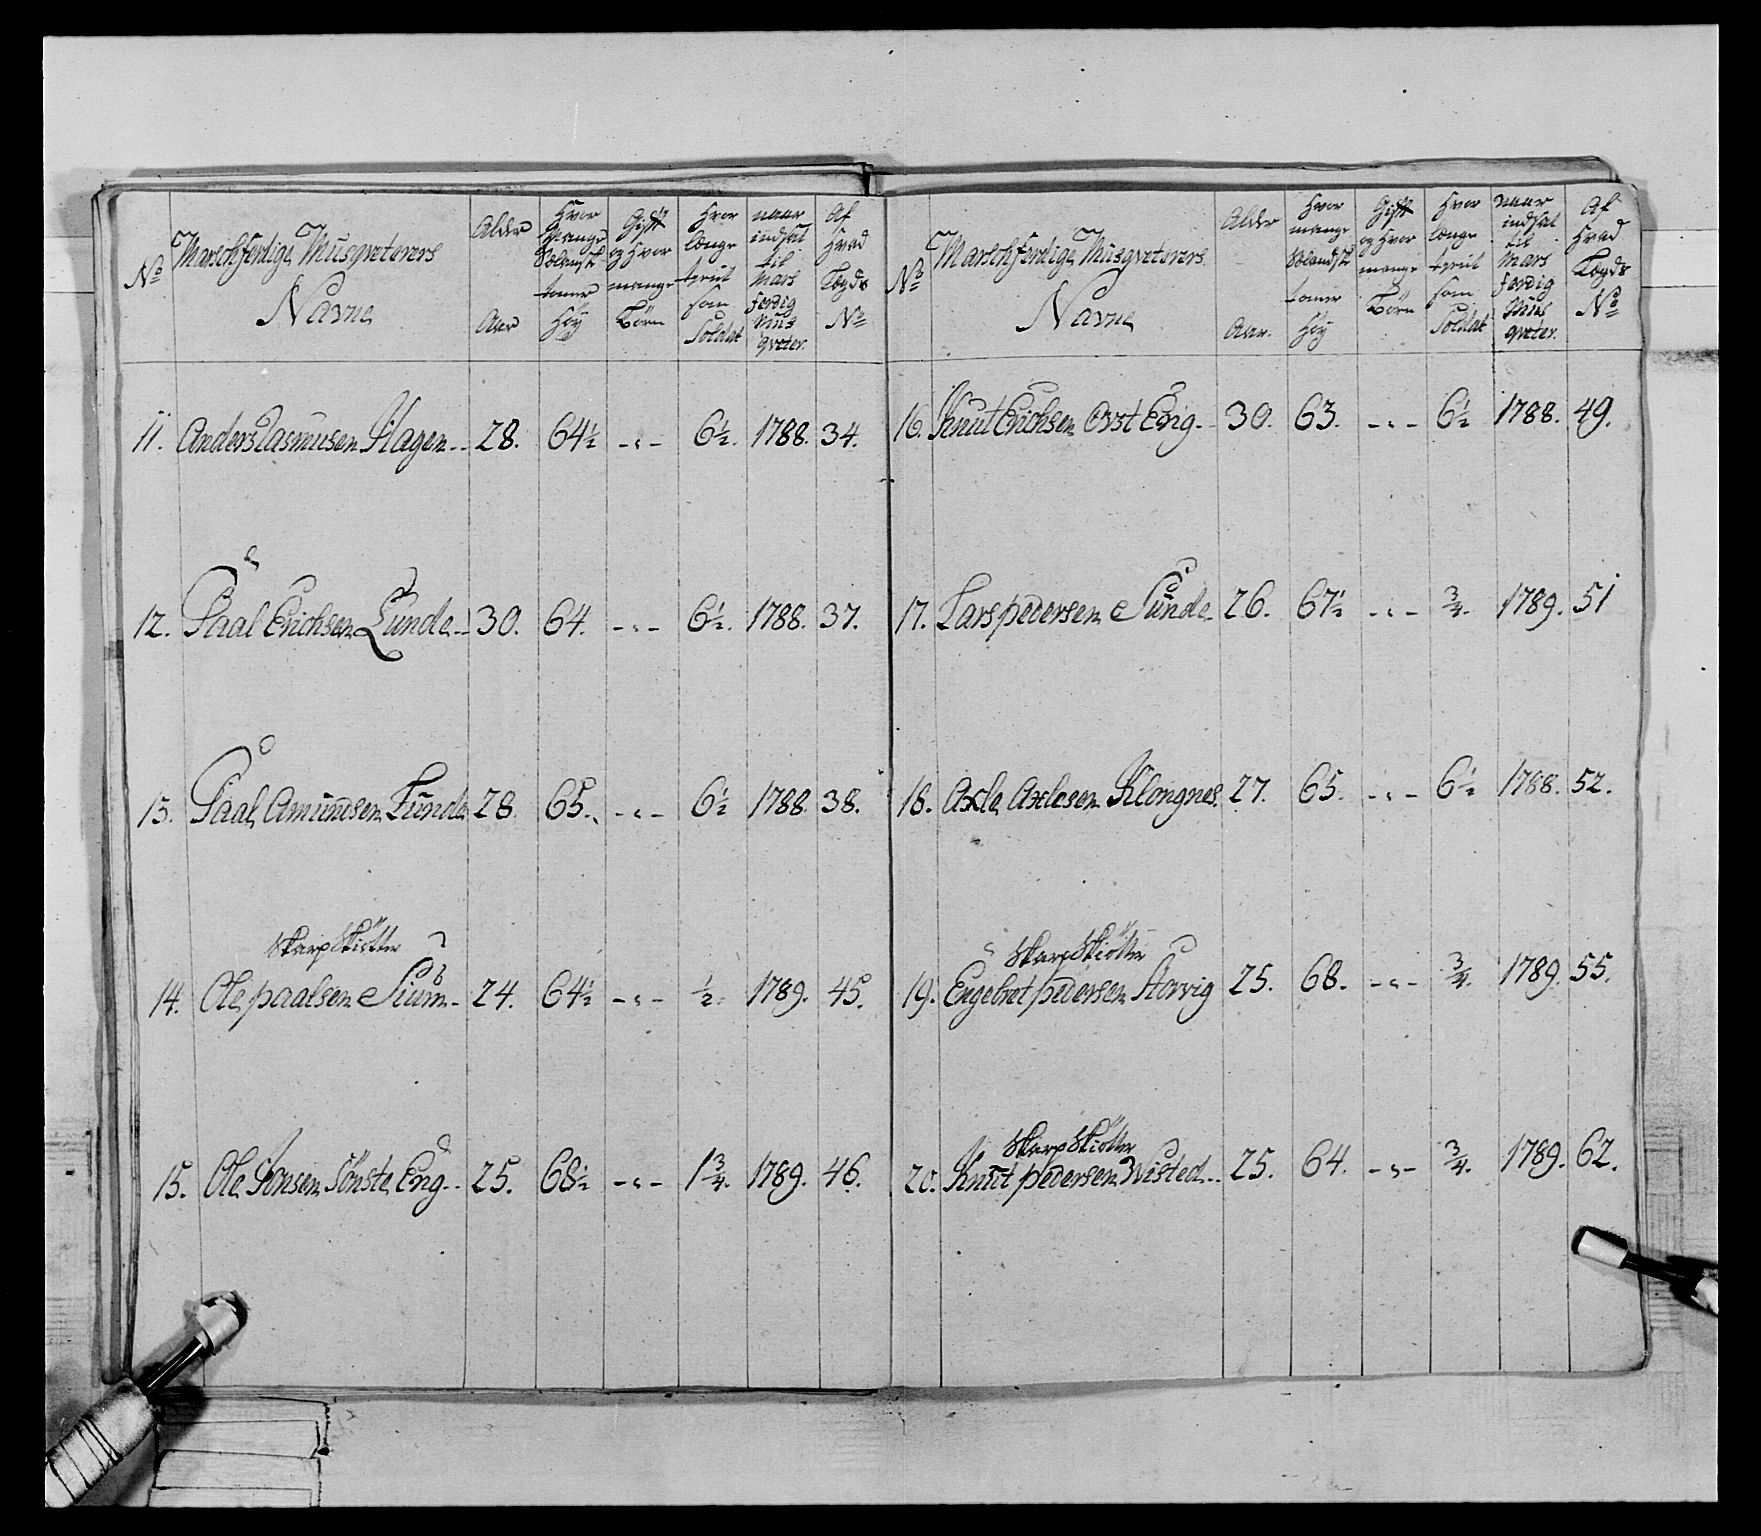 No
Marschferdige Musqveterers
Navne
Alder
Aar
Hvor
mange
Siælandske
tomer
Høy
Gift
og Hvor
mange
Børn
Hvor
længe
tient
som
Soldat
naar
indsat
til
Mars
ferdig
Mus
qveter.
Af
Hvad
Lægds
No
11. Anders Rasmusen Hagen -- 28. 64½ -"- 6½. 1788. 34.
12. Paal Erichsen Lunde -- 30. 64. -"- 6½. 1788. 37.
13. Paal Amundsen Lunde 28 65. -"- 6½ 1788. 38.
Skarp Skiøtter
14. Ole paalsen Sium - 24. 64½ -"- ½. 1789. 45.
15. Ole Jonsen Sønste Eng - 25. 68½ -"- 1¾. 1789. 46.
No
Marschferdige Musqveterers
Navne
Alder
Aar.
Hvor
mange
Siælandske
tomer
Høy
Gift
og Hvor
mange
Børn
Hvor
længe
tient
som
Soldat
naar
indsat
til
Mars
ferdig
Mus
qveter.
Af
Hvad
Lægds
No
16. Knut Erichsen Øvst Eng - 30. 63. -"- 6½ 1788. 49.
17. Lars pedersen Sunde - 26. 67½ -"- ¾. 1789. 51
18. Axle Axlesen Klongnes 27. 65. -"- 6½ 1788. 52.
Skarp Skiøtter
19. Engebret pedersen Storvig 25. 68. -"- ¾. 1789. 55.
Skarp Skiøtter
20. Knut pedersen Wisted - 25. 64. -"- ¾. 1789. 62.